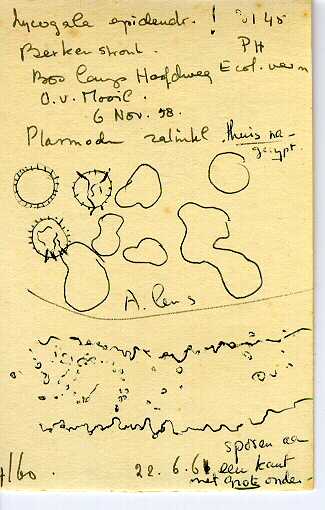 Lycogala epidendr. ! 145
Berkenstronk. PH
Bos langs Hoofdweg Ecol. verm
O.v. Mooil.
6 Nov. 58.
Plasmodn zalmkl. thuis na-
gerijpt.
A. lens
sporen aan
22.6.61 een kant
met grote onder-